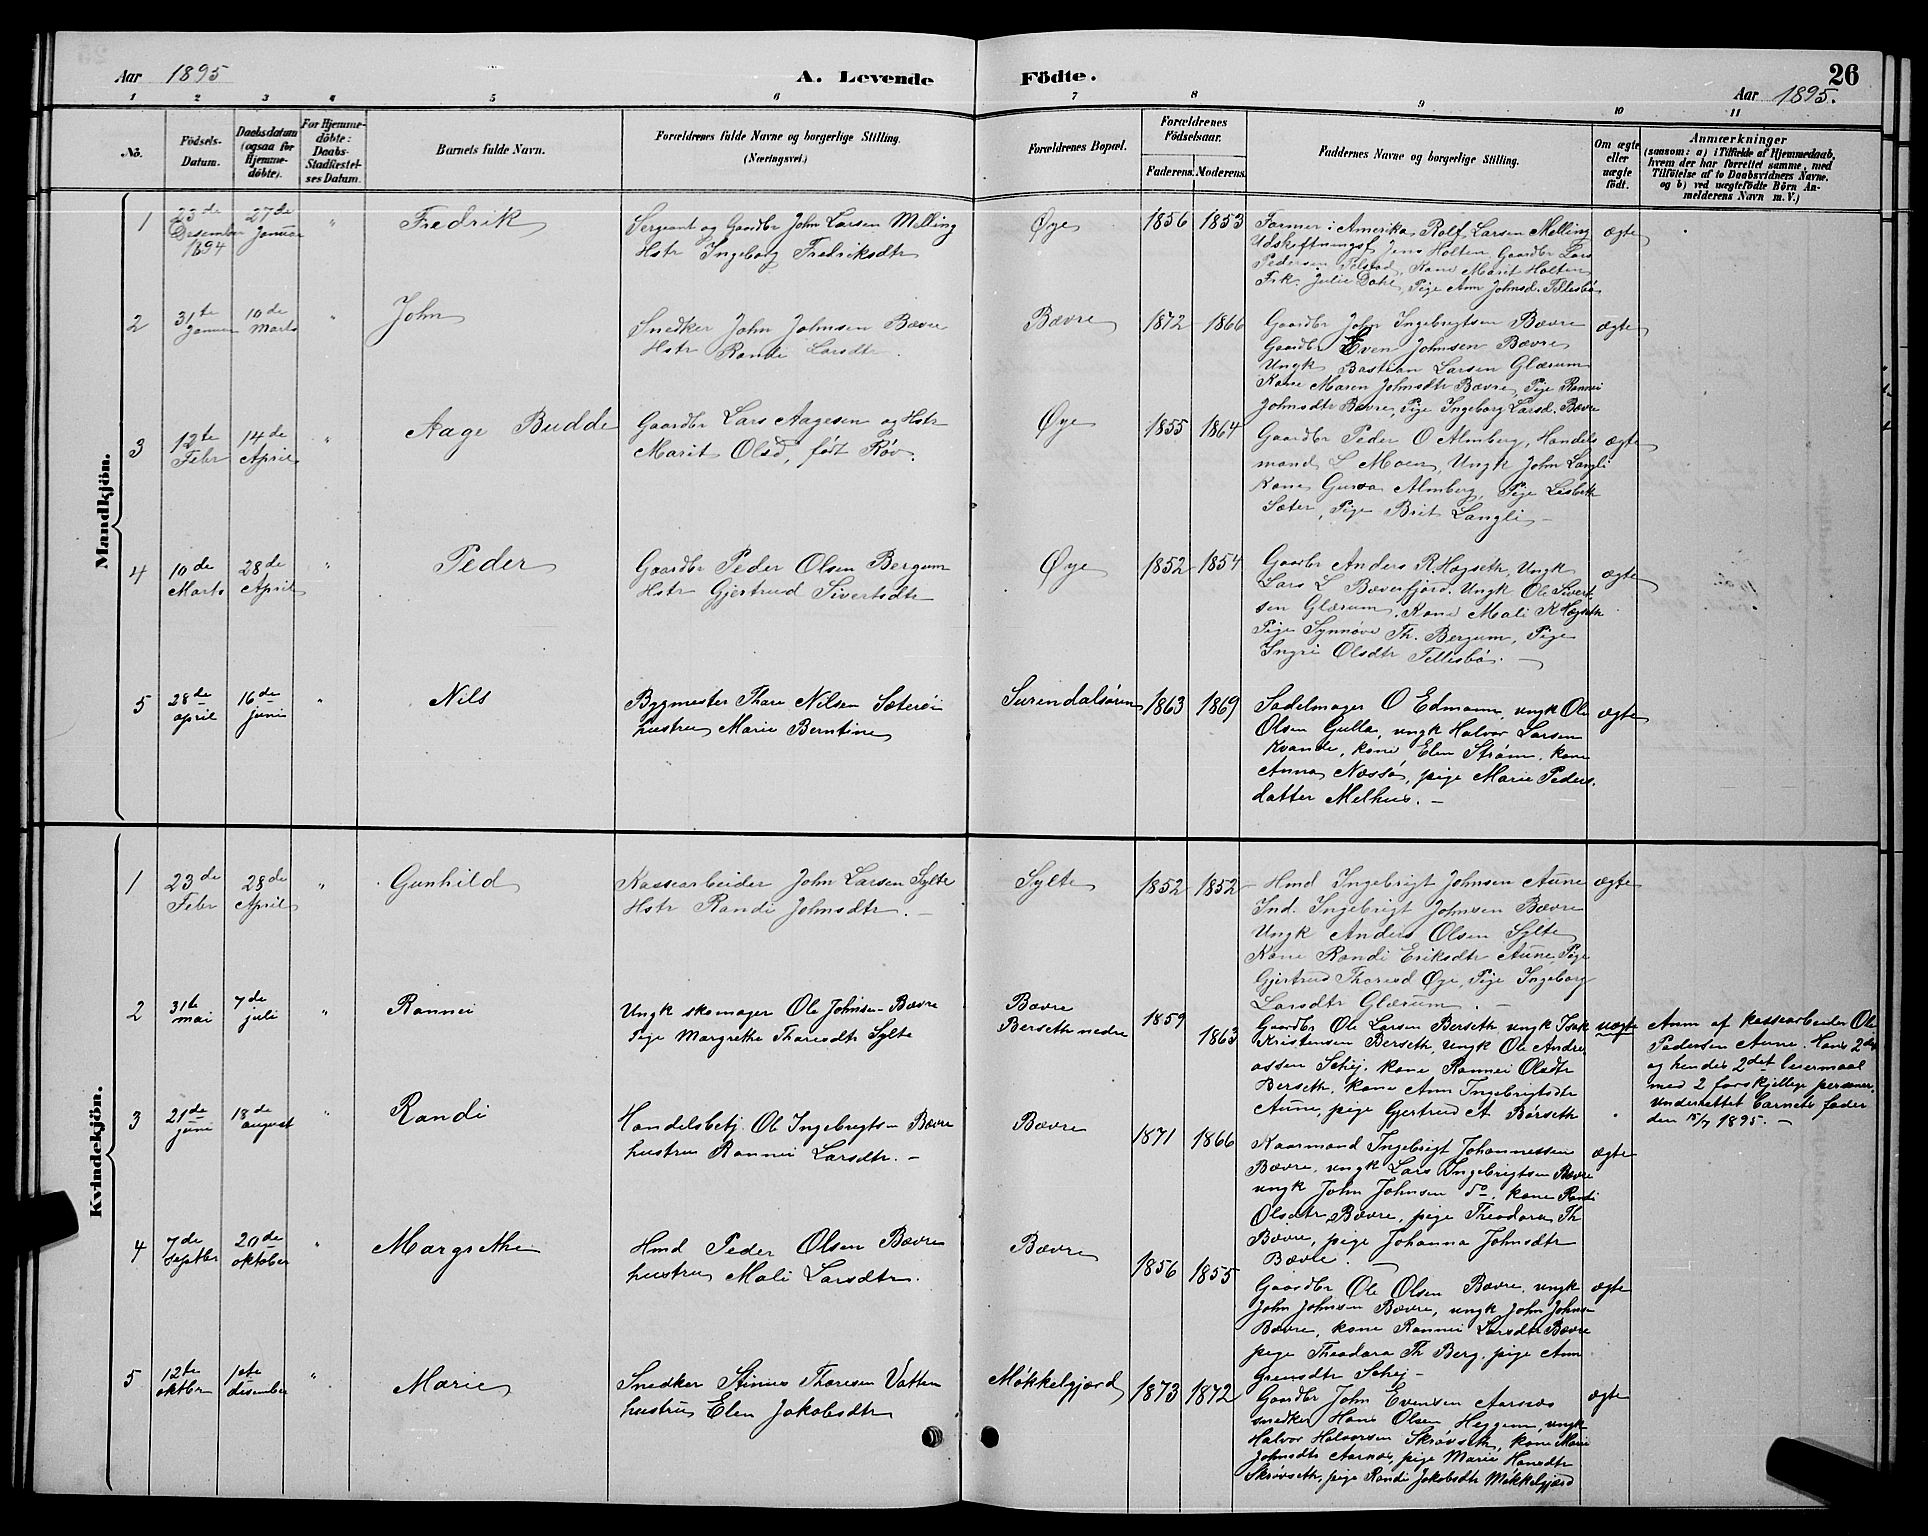 Aar 1895
A. Levende Födte.
26
Aar 1895.
1 2 3 4 5 6 7 8 9 10 11
No.
Födsels-Datum.
Daabsdatum (ogsaa for Hjemme-döbte).
For Hjemme-döbte: Daabs-Stadfæstel-ses Datum.
Barnets fulde Navn.
Forældrenes fulde Navne og borgerlige Stilling.
(Næringsvei.)
Forældrenes Bopæl.
Forældrenes Födselsaar.
Faderens. Moderens.
Faddernes Navne og borgerlige Stilling.
Om ægte eller uægte födt.
Anmærkninger
(saasom: a) i Tilfælde af Hjemmedaab,
hvem der har forrettet samme, med
Tilföielse af to Daabsvidners Navne.
og b) ved uægtefödte Börn An-
melderens Navn m. V.)
Mandkjön.
1
23de Desember 1894
27de Januar
"
Fredrik
Sergeant og Gaardbr John Larsen Melling
Hstr Ingeborg Fredriksdtr
Øye
1856 1853
Farmer i Amerika Rolf Larsen Melling
Udskiftningsf. Jens Holten, Gaardbr Lars
Pedersen Polstad, Kone Marit Holten
Frk. Julie Dahl, Pige Ann Johnsd. Tellesbö
ægte
2
31te Januar
10de Marts
"
John
Snedker John Johnsen Bævre
Hstr Randi Larsdtr.
Bævre
1872 1866
Gaardbr John Ingebrigtsen Bævre
Gaardbr Even Johnsen Bævre
Ungk Bastian Larsen Glærum
Kone Maren Johnsdtr Bævre, Pige Rannei
Johnsdtr Bævre, Pige Ingeborg Larsd. Bævre
ægte
3
12te Febr
14de April
"
Aage Budde
Gaardbr Lars Aagesen og Hstr
Marit Olsd, født Røv.
Øye
1855 1864
Gaardbr Peder O Almberg, Handels
mand L Moen, Ungk John Langli
Kone Guroa Almberg, Pige Lisbeth
Sæter, Pige Brit Langli –
ægte
4
10de Marts
28de April
"
Peder
Gaardbr Peder Olsen Bergum
Hstr Gjertrud Sivertsdtr
Øye
1852 1854
Gaardbr Anders R Hogseth, Ungk
Lars L Bæverfjord. Ungk Ole Sivert
sen Glærum. Kone Mali K Høgseth
Pige Synnøve Th. Bergum, Pige
Ingri Olsdtr Tellesbö. –
ægte
5
28de april
16de juni
"
Nils
Bygmester Thore Nilsen Sæterøi
hustru Marie Berntine
Surendalsøren
1863 1869
Sadelmager O Edmann, ungk Ole
Olsen Gulla, ungk Halvor Larsen
Kvande, kone Elen Strøm, kone
Anna Næssø, pige Marie Peders
datter Melhus. –
ægte
Kvindekjön.
1
23de Febr
28de April
"
Gunhild
Kassearbeider John Larsen Sylte
Hstr Randi Johnsdtr. –
Sylte
1852 1852
Hmd Ingebrigt Johnsen Aune
Ind. Ingebrigt Johnsen Bævre
Ungk Anders Olsen Sylte
Kone Randi Eriksdtr Aune, Pige
Gjertrud Thoresd Øye, Pige Ingeborg
Larsdtr Glærum. –
ægte
2
31te mai
7de juli
"
Rannei
Ungk skomager Ole Johnsen Bævre
Pige Margrethe Thoresdtr Sylte
Bævre
Berseth nedre
1859 1863
Gaardbr Ole Larsen Berseth, ungk Isak
Kristensen Berseth, ungk Ole Andre
assen Schej, kone Rannei Olsdtr
Berseth, kone Ann Ingebrigtsdtr
Aune, pige Gjertrud A Børseth
uægte
Anm af kassearbeider Ole
Pedersen Aune. Hans 2det
og hendes 2det leiermaal
med 2 forskjellige personer.
Underrettet barnets fader
den 15/7 1895. –
3
21de juni
18de august
"
Randi
Handelsbetj. Ole Ingebrigtsen Bævre
hustru Rannei Larsdtr. –
Bævre
1871 1866
Kaarmand Ingebrigt Johannessen
Bævre, ungk Lars Ingebrigtsen Bævre
ungk John Johnsen do. kone Randi
Olsdtr Bævre, pige Theodora Th
Bævre, pige Johanna Johnsdtr
Bævre. –
ægte
4
7de septbr
20de oktober
"
Margrethe
Hmd Peder Olsen Bævre
hustru Mali Larsdtr.
Bævre
1856 1855
Gaardbr Ole Olsen Bævre, ungk
John Johnsen Bævre, ungk John Johnsen
Bævre, kone Rannei Larsdtr Bævre
pige Theodora Th Berg, pige Ann
Schej –
ægte
5
12te oktbr
1ste desember
"
Marie
Snedker Stinius Thoresen Vatten
hustru Elen Jakobsdtr
Møkkelgjærd
1873 1872
Gaardbr John Evensen Aarnes
snedker Hans Olsen Heggem, ungk
Halvor Halvorsen Skrøvseth, kone Marie
Johnsdtr Aarnæs, pige Marie Hansdtr
Skrøvseth, pige Randi Jakobsdtr Møkkelgjærd
ægte